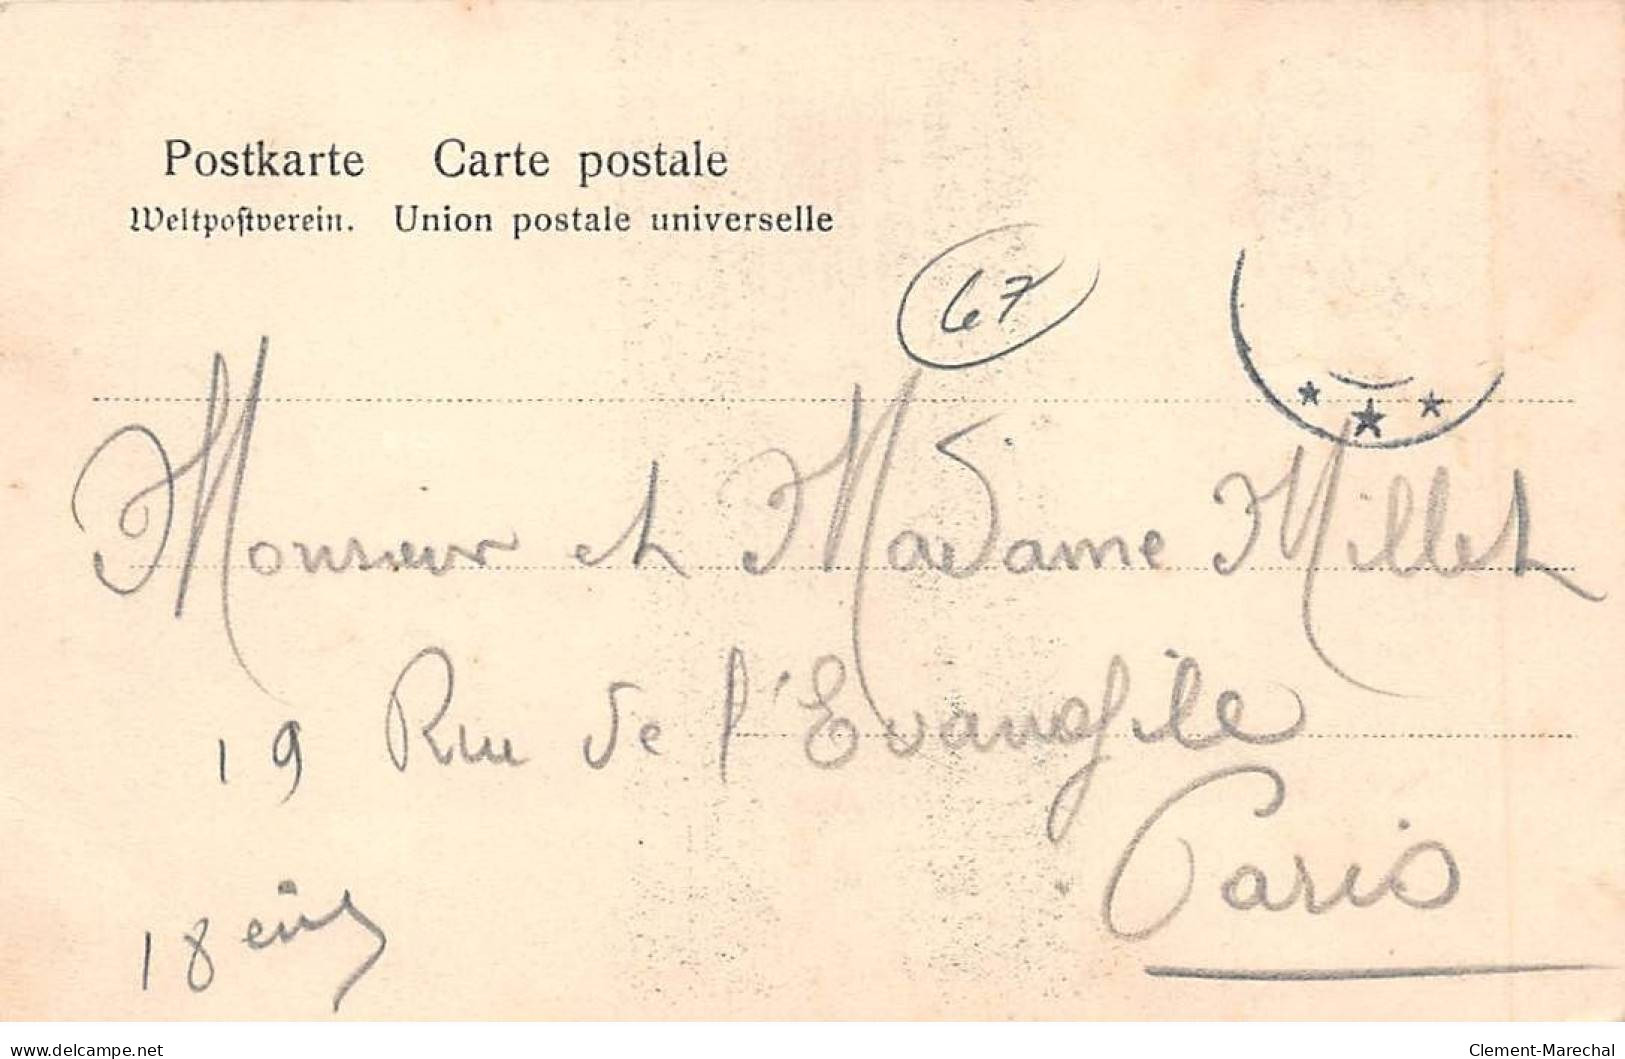 Postkarte Carte postale
Weltpostverein. Union postale universelle
67
Monsieur et Madame Millet
19 Rue de l'Evangile
Paris
18 eme
www.delcampe.net
Clement-Marechal